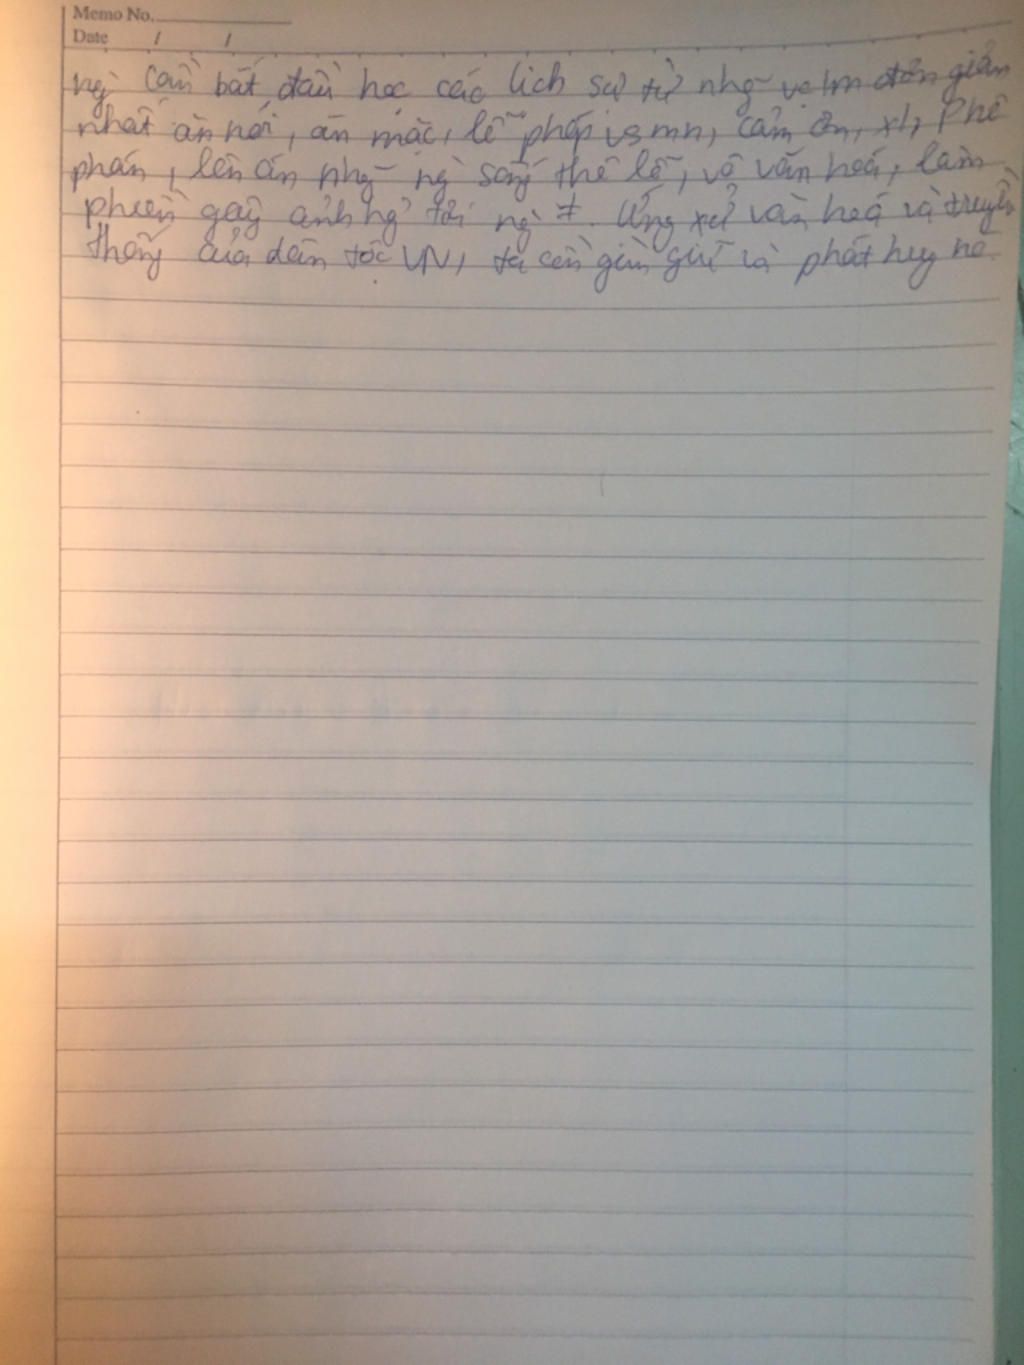 Memo No.
Date / /
ng` cần bắt đầu học các lịch sự từ nhg~ vc đơn giản
nhất ăn nói, ăn mặc, lễ phép vs mn, cảm ơn, xl, Phê
phán, lên án nhg~ ng` sống thô lỗ, vô văn hoá, làm
phiền gây ảnh hg? tới ng` ≠. Ứng xử văn hoá là truyền
thống của dân tộc VN, ta cần gìn giữ và phát huy nó.